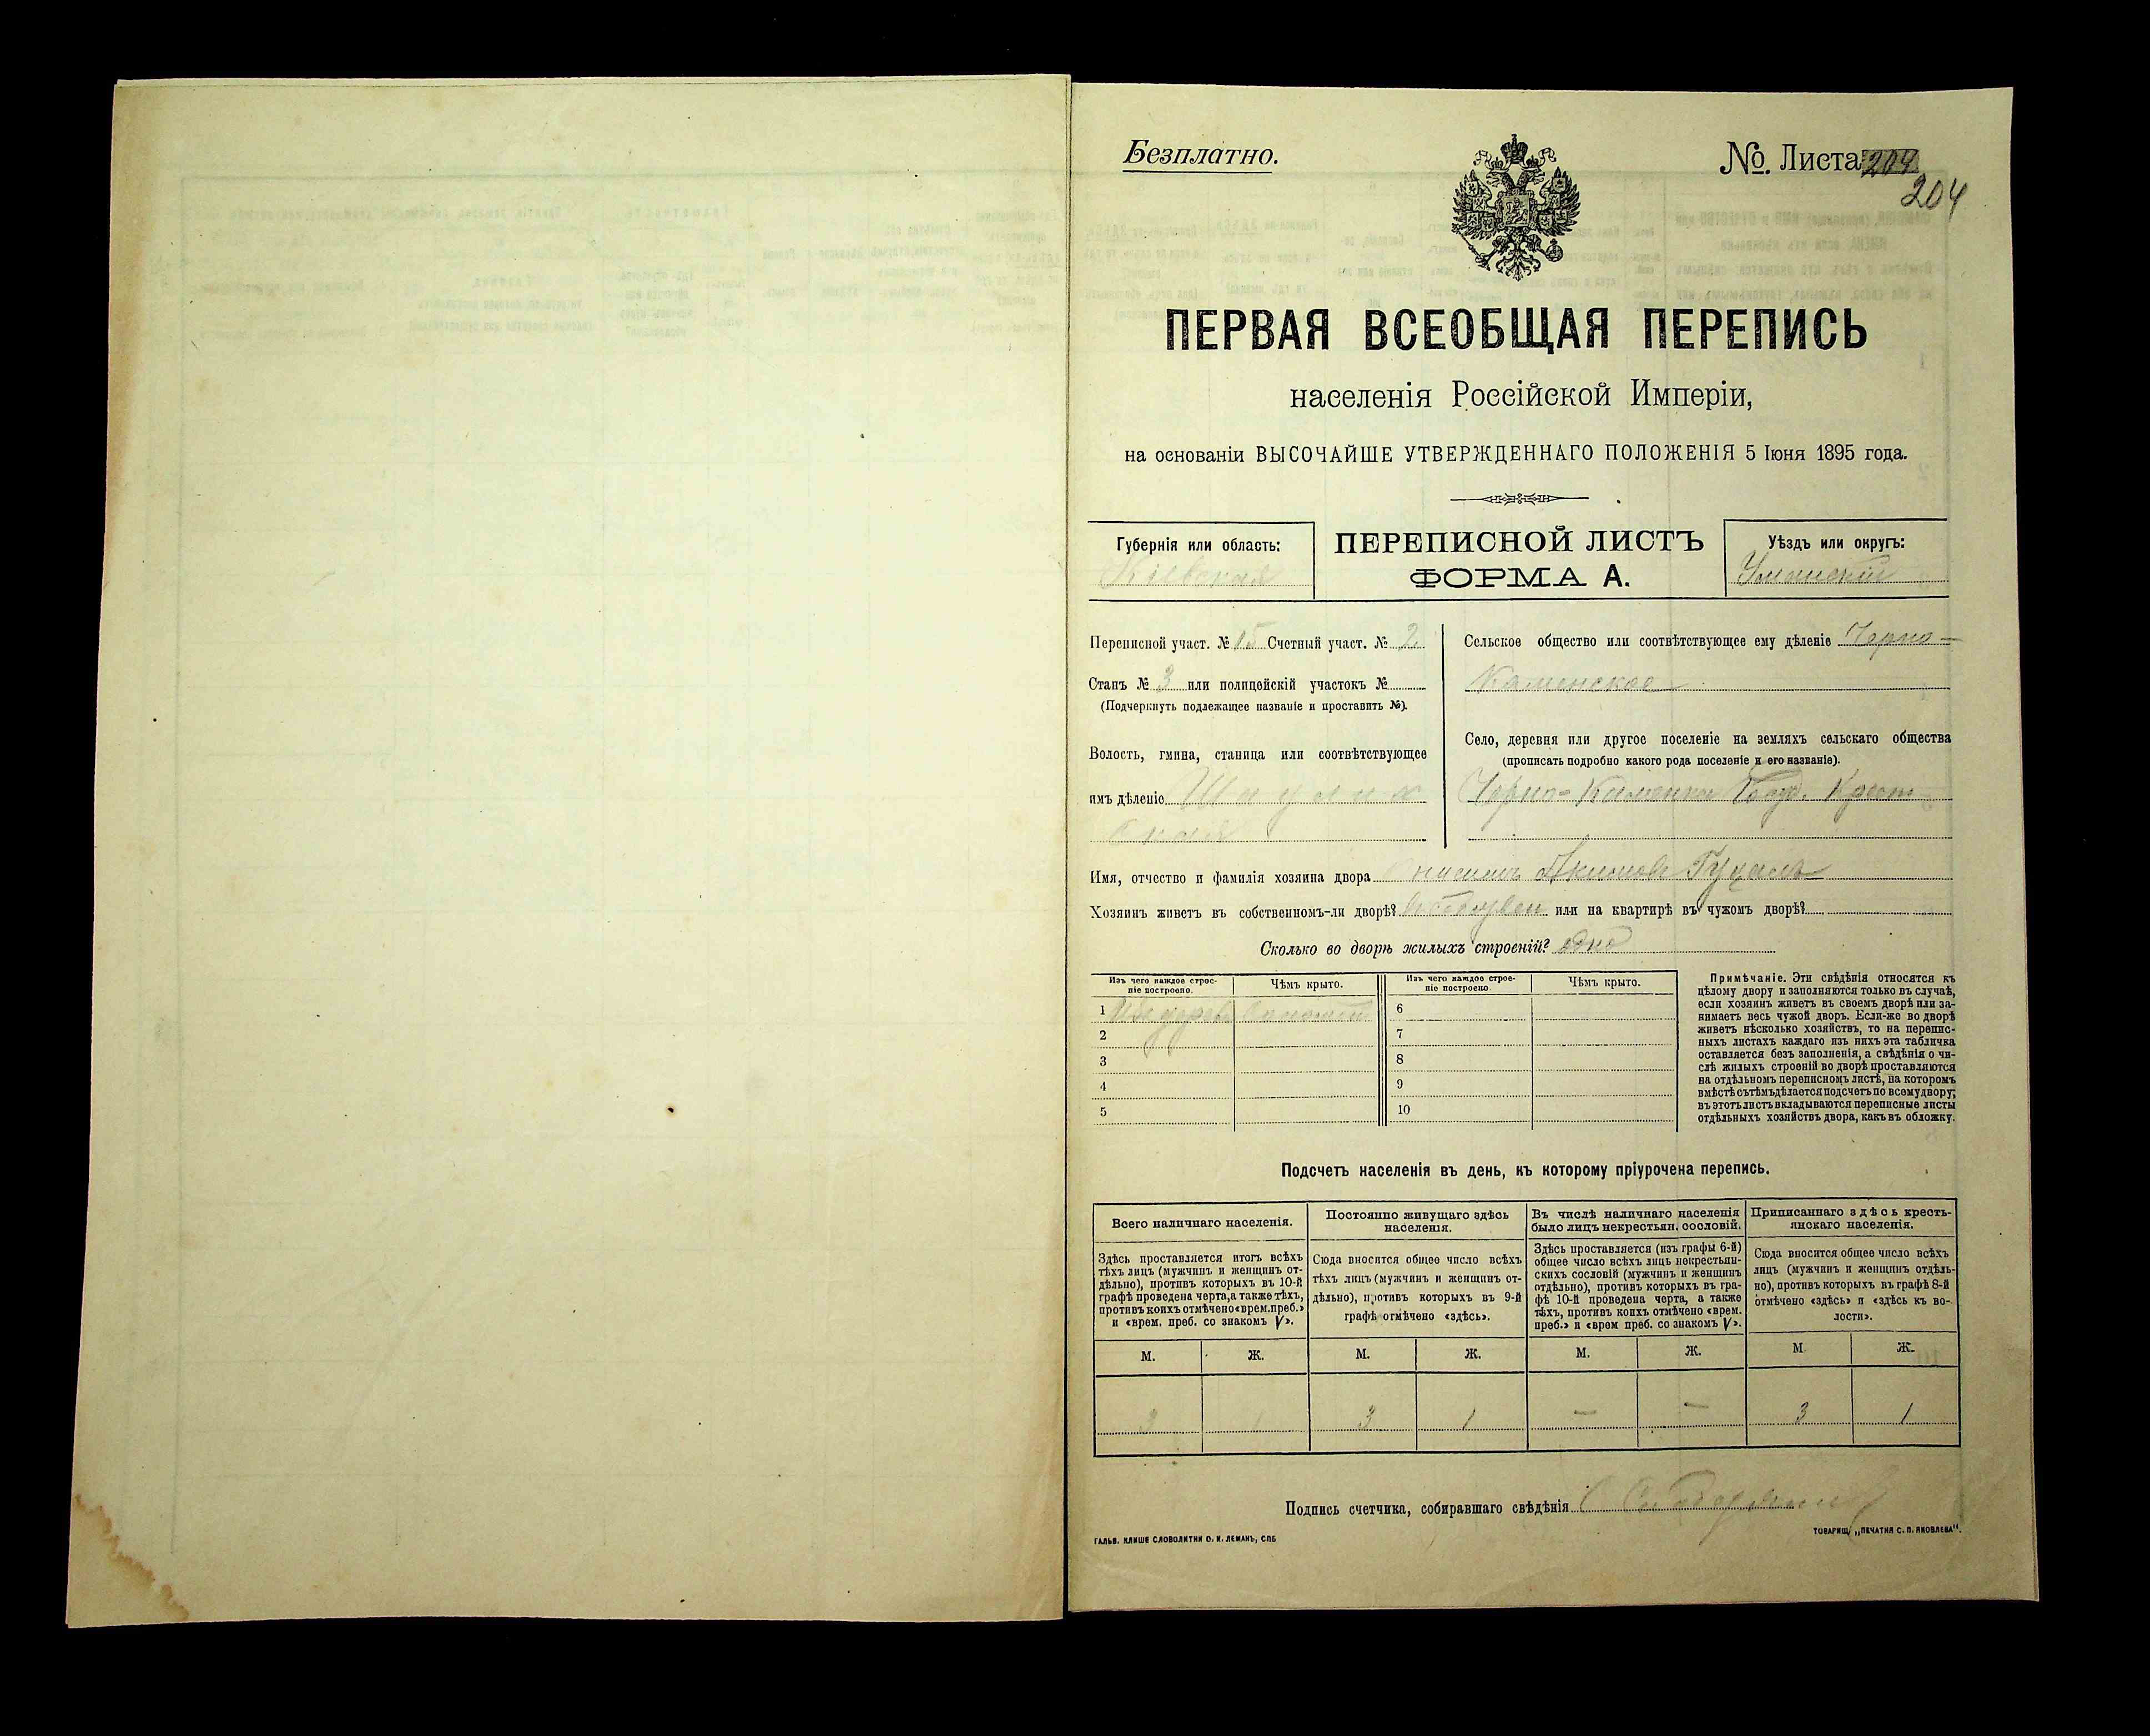 Безплатно.
№. Листа 204
204
ПЕРВАЯ ВСЕОБЩАЯ ПЕРЕПИСЬ
населенія Россійской Имперіи,
на основаніи ВЫСОЧАЙШЕ УТВЕРЖДЕННАГО ПОЛОЖЕНІЯ 5 Іюня 1895 года.
Губернія или область:
Кіевская
ПЕРЕПИСНОЙ ЛИСТЪ
ФОРМА А.
Уѣздъ или округъ:
Уманскій
Переписной участ. № 15 Счетный участ. № 2
Станъ № 3 или полицейскій участокъ №
(Подчеркнуть подлежащее названіе и проставить №).
Волость, гмина, станица или соотвѣтствующее
имъ дѣленіе
ская
Сельское общество или соотвѣтствующее ему дѣленіе Черно-
Каменское
Село, деревня или другое поселеніе на земляхъ сельскаго общества
(прописать подробно какого рода поселеніе и его названіе).
Черно-Каменка Госуд. Крест
Имя, отчество и фамилія хозяина двора Онисимъ Акимовъ
Хозяинъ живетъ въ собственномъ-ли дворѣ? или на квартирѣ въ чужомъ дворѣ?
Сколько во дворѣ жилыхъ строеній? одно
Изъ чего каждое строе-
ніе построено.
Чѣмъ крыто.
Изъ чего каждое строе-
ніе построено.
Чѣмъ крыто.
1 Изъ дерева Соломой
2
3
4
5
6
7
8
9
10
Примѣчаніе. Эти свѣдѣнія относятся къ
цѣлому двору и заполняются только въ случаѣ,
если хозяинъ живетъ въ своемъ дворѣ или за-
нимаетъ весь чужой дворъ. Если-же во дворѣ
живетъ нѣсколько хозяйствъ, то на перепис-
ныхъ листахъ каждаго изъ нихъ эта табличка
оставляется безъ заполненія, а свѣдѣнія о чи-
слѣ жилыхъ строеній во дворѣ проставляются
на отдѣльномъ переписномъ листѣ, на которомъ
вмѣстѣ съ тѣмъ дѣлается подсчетъ по всему двору;
въ этотъ листъ вкладываются переписные листы
отдѣльныхъ хозяйствъ двора, какъ въ обложку.
Подсчетъ населенія въ день, къ которому пріурочена перепись.
Всего наличнаго населенія.
Здѣсь проставляется итогъ всѣхъ
тѣхъ лицъ (мужчинъ и женщинъ от-
дѣльно), противъ которыхъ въ 10-й
графѣ проведена черта, а также тѣхъ,
противъ коихъ отмѣчено «врем. преб.»
и «врем. преб. со знакомъ V».
Постоянно живущаго здѣсь
населенія.
Сюда вносится общее число всѣхъ
тѣхъ лицъ (мужчинъ и женщинъ от-
дѣльно), противъ которыхъ въ 9-й
графѣ отмѣчено «здѣсь».
Въ числѣ наличнаго населенія
было лицъ некрестьян. сословій.
Здѣсь проставляется (изъ графы 6-й)
общее число всѣхъ лицъ некрестьян-
скихъ сословій (мужчинъ и женщинъ
отдѣльно), противъ которыхъ въ гра-
фѣ 10-й проведена черта, а также
тѣхъ, противъ коихъ отмѣчено «врем.
преб.» и «врем преб. со знакомъ V».
Приписаннаго здѣсь кресть-
янскаго населенія.
Сюда вносится общее число всѣхъ
лицъ (мужчинъ и женщинъ отдѣль-
но), противъ которыхъ въ графѣ 8-й
отмѣчено «здѣсь» и «здѣсь къ во-
лости».
М. Ж. М. Ж. М. Ж. М. Ж.
3 1 3 1 — — 3 1
Подпись счетчика, собиравшаго свѣдѣнія
ГАЛЬВ. КЛИШЕ СЛОВОЛИТНИ О. И. ЛЕМАНЪ, СПБ
ТОВАРИЩ. „ПЕЧАТНЯ С. П. ЯКОВЛЕВА".